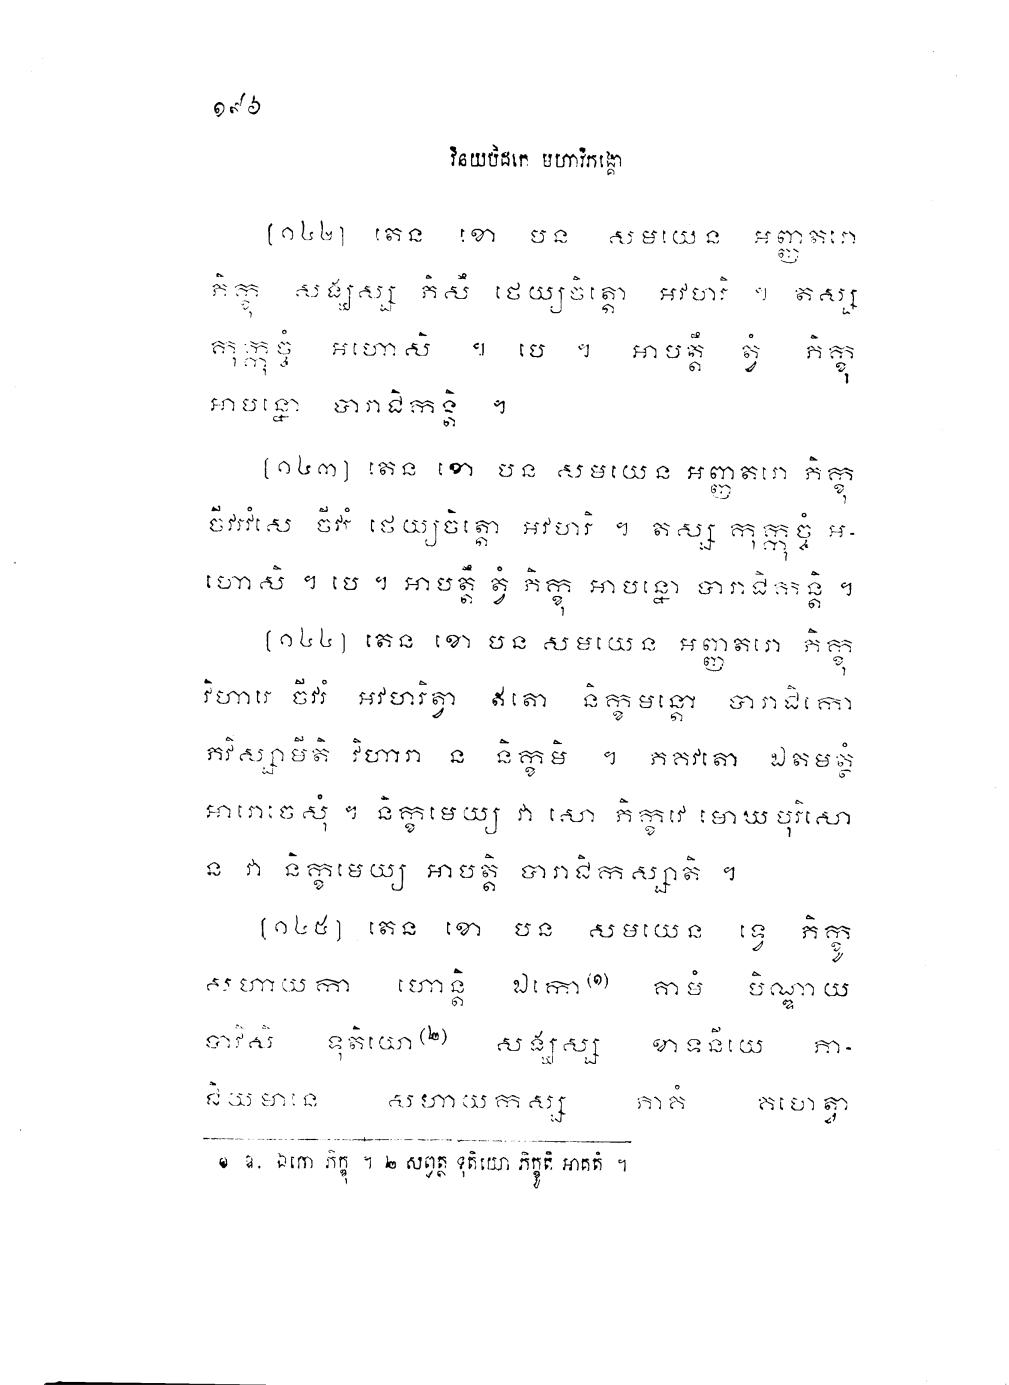 ១៩៦
វិនយបិដកេ មហាវិភង្គោ
[១៤២] តេន ខោ បន សមយេន អញ្ញតរោ
ភិក្ខុ សង្ឃស្ស ភិសឹ ថេយ្យចិត្តោ អវហរិ ។ តស្ស
កុក្កុច្ចំ អហោសិ ។ បេ ។ អាបត្តឹ ត្វំ ភិក្ខុ
អាបន្នោ បារាជិកន្តិ ។
[១៤៣] តេន ខោ បន សមយេន អញ្ញតរោ ភិក្ខុ
ចីវរវំសេ ចីវរំ ថេយ្យចិត្តោ អវហរិ ។ តស្ស កុក្កុច្ចំ អ-
ហោសិ ។ បេ ។ អាបត្តឹ ត្វំ ភិក្ខុ អាបន្នោ បារាជិកន្តិ ។
[១៤៤] តេន ខោ បន សមយេន អញ្ញតរោ ភិក្ខុ
វិហារេ ចីវរំ អវហរិត្វា ឥតោ និក្ខមន្តោ បារាជិកោ
ភវិស្សាមីតិ វិហារា ន និក្ខមិ ។ ភគវតោ ឯតមត្ថំ
អារោចេសុំ ។ និក្ខមេយ្យ វា សោ ភិក្ខវេ មោឃបុរិសោ
ន វា និក្ខមេយ្យ អាបត្តិ បារាជិកស្សាតិ ។
[១៤៥] តេន ខោ បន សមយេន ទ្វេ ភិក្ខូ
សហាយកា ហោន្តិ ឯកោ(១) គាមំ បិណ្ឌាយ
បាវិសិ ទុតិយោ(២) សង្ឃស្ស ខាទនីយេ ភា-
ជិយមានេ សហាយកស្ស ភាគំ គហេត្វា
១ ឱ. ឯកោ ភិក្ខុ ។ ២ សព្វត្ថ ទុតិយោ ភិក្ខូតិ អាគតំ ។